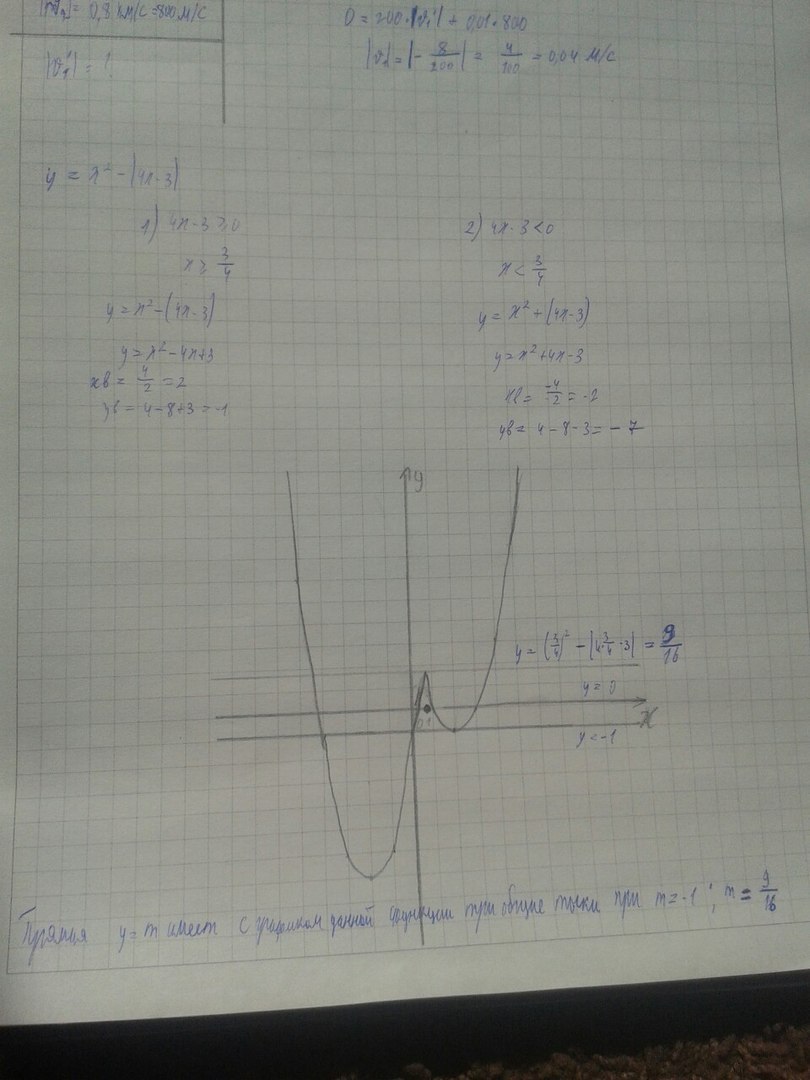 |v₂| = 0,8 км/с = 800 м/с
0 = 200·|v₁'| + 0,01·800
|v₁'| = |-8/200| = 4/100 = 0,04 м/с
|v₁'| = ?
y = x² - |4x-3|
1) 4x-3 ≥ 0
x ≥ 3/4
y = x² - (4x-3)
y = x² - 4x+3
xв = 4/2 = 2
yв = 4-8+3 = -1
2) 4x-3 < 0
x < 3/4
y = x² + (4x-3)
y = x² + 4x-3
xв = -4/2 = -2
yв = 4-8-3 = -7
y
y = (3/4)² - |4·3/4-3| = 9/16
y = 0
0 1
x
y = -1
Прямая y = m имеет с графиком данной функции три общие точки при m = -1; m = 9/16